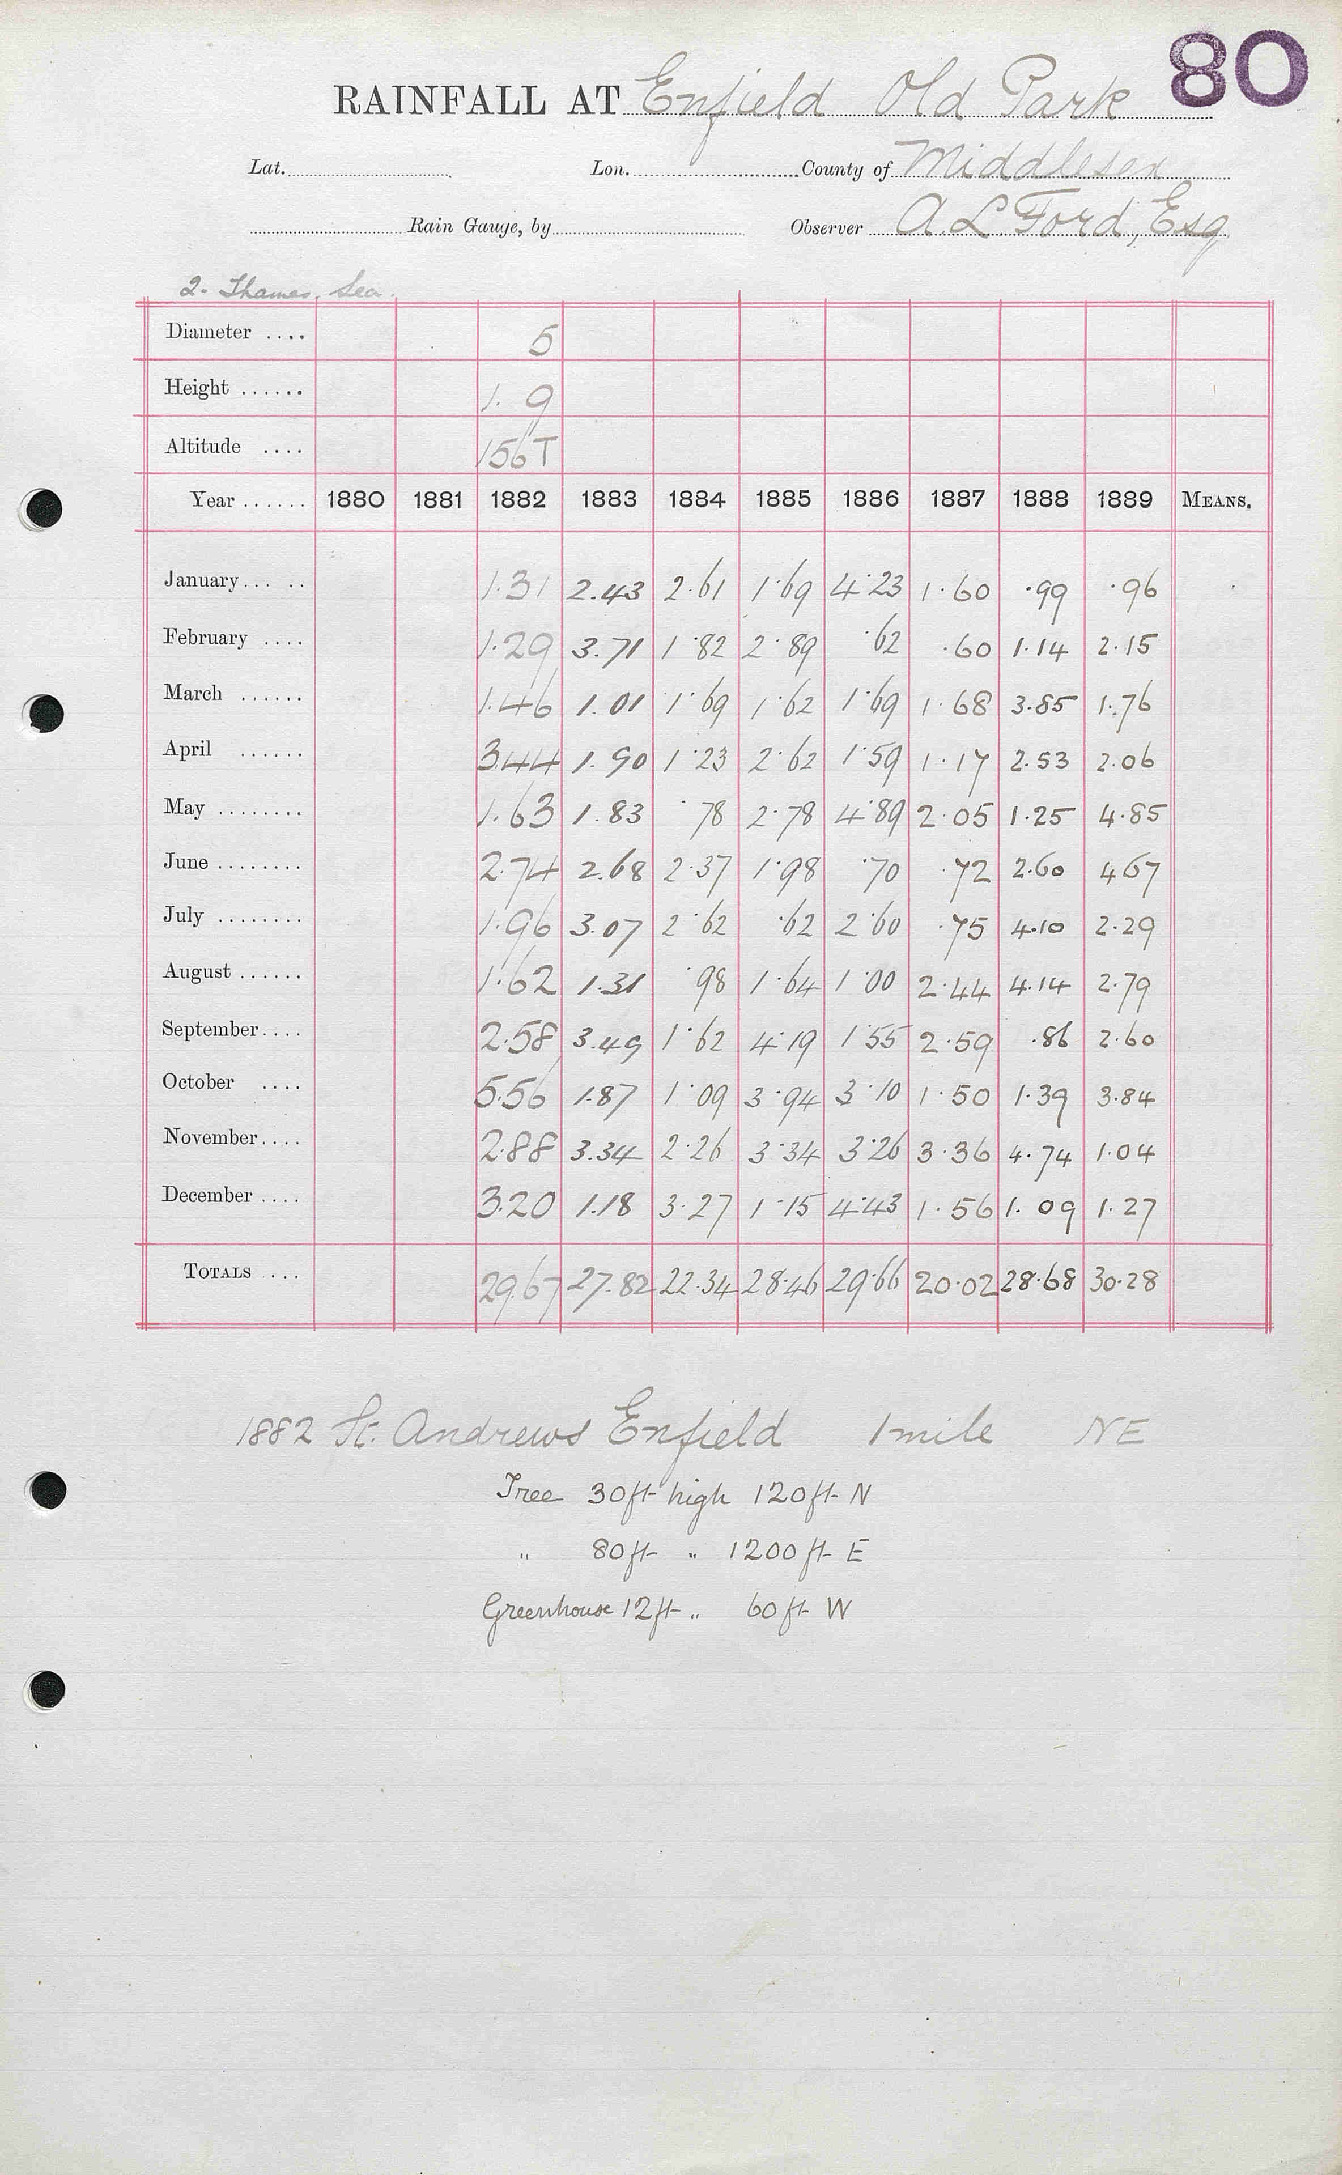 80
RAINFALL AT Enfield Old Park
Lat. Lon. County of Middlesex
Rain Gauge, by Observer A L Ford, Esq
2. Thames, Sea.
Diameter .... 5
Height ...... 1. 9
Altitude .... 156 T
Year ...... 1880 1881 1882 1883 1884 1885 1886 1887 1888 1889 MEANS.
January... .. 1.31 2.43 2.61 1.69 4.23 1.60 .99 .96
February .... 1.29 3.71 1.82 2.89 .62 .60 1.14 2.15
March ...... 1.46 1.01 1.69 1.62 1.69 1.68 3.85 1.76
April ...... 3.44 1.90 1.23 2.62 1.59 1.17 2.53 2.06
May ........ 1.63 1.83 .78 2.78 4.89 2.05 1.25 4.85
June ........ 2.74 2.68 2.37 1.98 .70 .72 2.60 4 67
July ........ 1.96 3.07 2.62 .62 2.60 .75 4.10 2.29
August ...... 1.62 1.31 .98 1.64 1.00 2.44 4.14 2.79
September.... 2.58 3.49 1.62 4.19 1.55 2.59 .86 2.60
October .... 5.56 1.87 1.09 3.94 3.10 1.50 1.39 3.84
November.... 2.88 3.34 2.26 3.34 3.26 3.36 4.74 1.04
December .... 3.20 1.18 3.27 1.15 4.43 1.56 1.09 1.27
TOTALS .... 29.67 27.82 22.34 28.46 29.66 20.02 28.68 30.28
1882 St. Andrews Enfield 1 mile NE
Tree 30ft high 120ft N
" 80ft " 1200ft E
Greenhouse 12ft " 60ft W